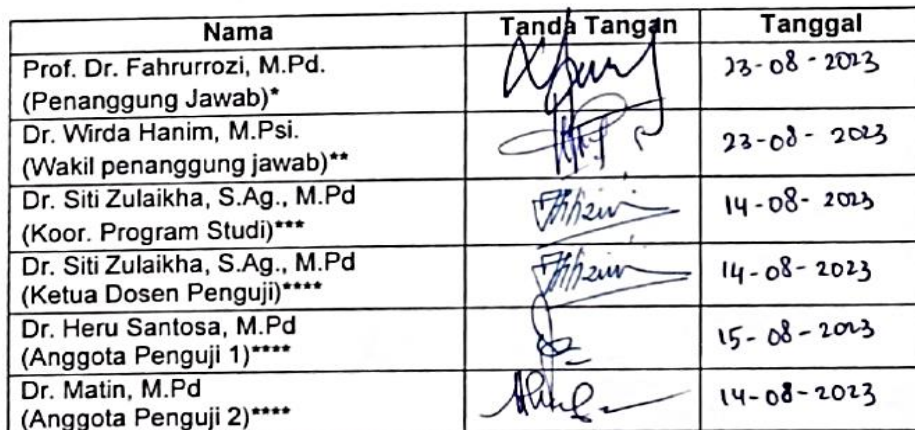 Nama Tanda Tangan Tanggal
Prof. Dr. Fahrurrozi, M.Pd.
(Penanggung Jawab)* 23-08-2023
Dr. Wirda Hanim, M.Psi.
(Wakil penanggung jawab)** 23-08-2023
Dr. Siti Zulaikha, S.Ag., M.Pd
(Koor. Program Studi)*** 14-08-2023
Dr. Siti Zulaikha, S.Ag., M.Pd
(Ketua Dosen Penguji)**** 14-08-2023
Dr. Heru Santosa, M.Pd
(Anggota Penguji 1)**** 15-08-2023
Dr. Matin, M.Pd
(Anggota Penguji 2)**** 14-08-2023